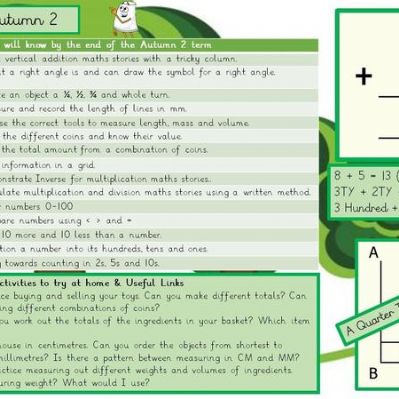 utumn 2
will know by the end of the Autumn 2 term
vertical addition maths stories with a tricky column.
t a right angle is and can draw the symbol for a right angle.
e an object a ¼, ½, ¾ and whole turn.
ure and record the length of lines in mm.
se the correct tools to measure length, mass and volume.
the different coins and know their value.
the total amount from a combination of coins.
information in a grid.
onstrate Inverse for multiplication maths stories.
ulate multiplication and division maths stories using a written method.
numbers 0-100
are numbers using < > and =
10 more and 10 less than a number.
tion a number into its hundreds, tens and ones.
towards counting in 2s, 5s and 10s.
ctivities to try at home & Useful Links
ce buying and selling your toys. Can you make different totals? Can
ing different combinations of coins?
ou work out the totals of the ingredients in your basket? Which item
ouse in centimetres. Can you order the objects from shortest to
millimetres? Is there a pattern between measuring in CM and MM?
actice measuring out different weights and volumes of ingredients.
uring weight? What would I use?
+
8 + 5 = 13 (
3TY + 2TY
3 Hundred +
A
A Quarter T
B